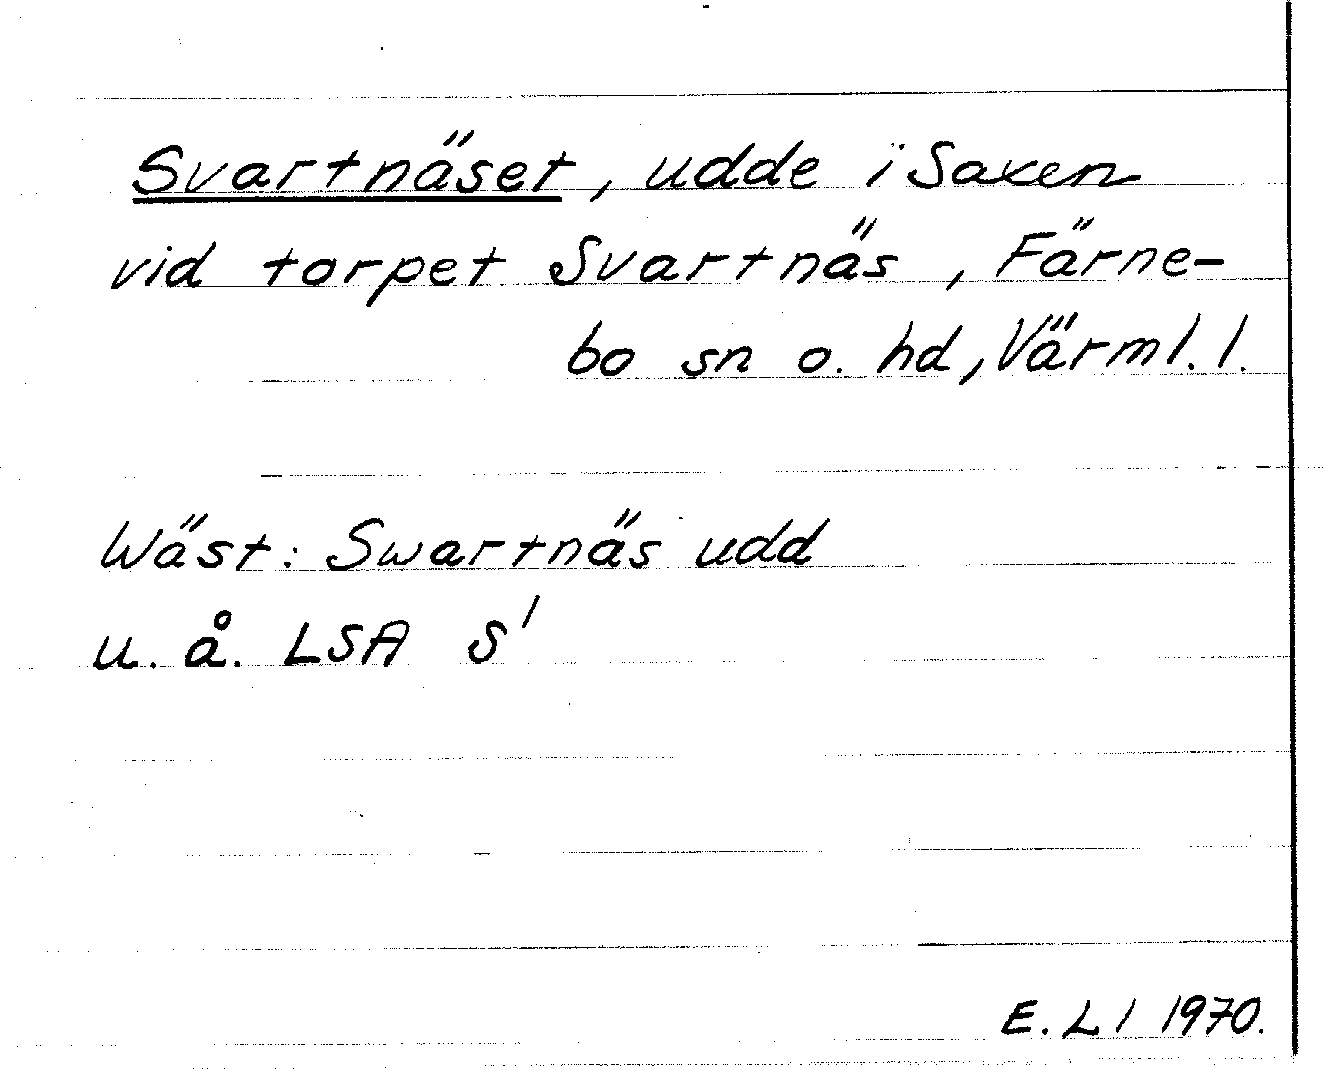 Svartnäset, udde i Saxen
vid torpet Svartnäs, Färne-
bo sn o. hd, Värml. l.
Wäst: Swartnäs udd
u. å. LSA S'
E. L l 1970.